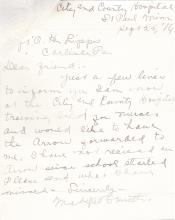 City and County Hospital
St Paul Minn
Sept 22, '16
M. Friedman
Carlisle Pa
Dear friend:-
Just a few lines
to inform you I am now
at the City and County Hospital
training for nurses
and would like to have
the Arrow forwarded to
me. I have not received an
Arrow since school started
Please send what I have
missed. - Sincerely -